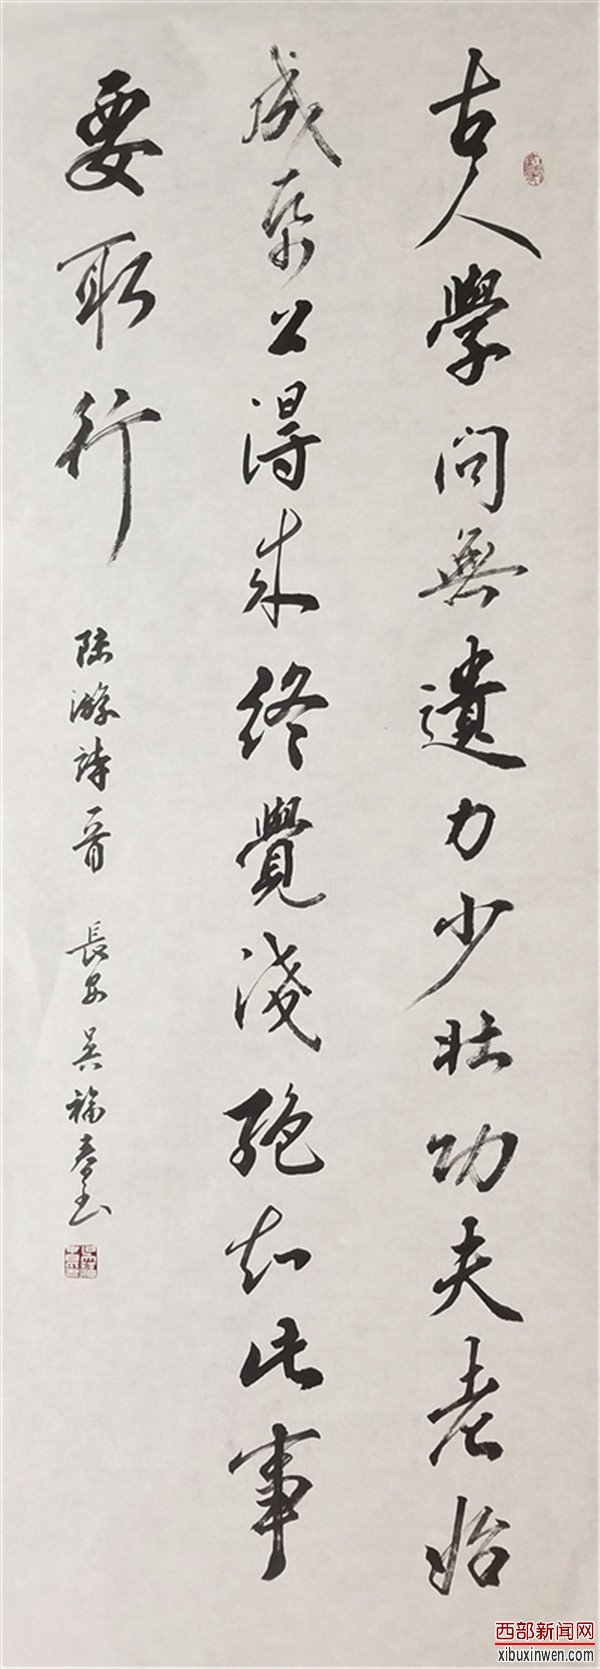 古人學問無遺力少壯功夫老始
成帋上得来終覺淺絕知此事
要躬行
陸游詩一首 長安吳福春书
西部新闻网
xibuxinwen.com